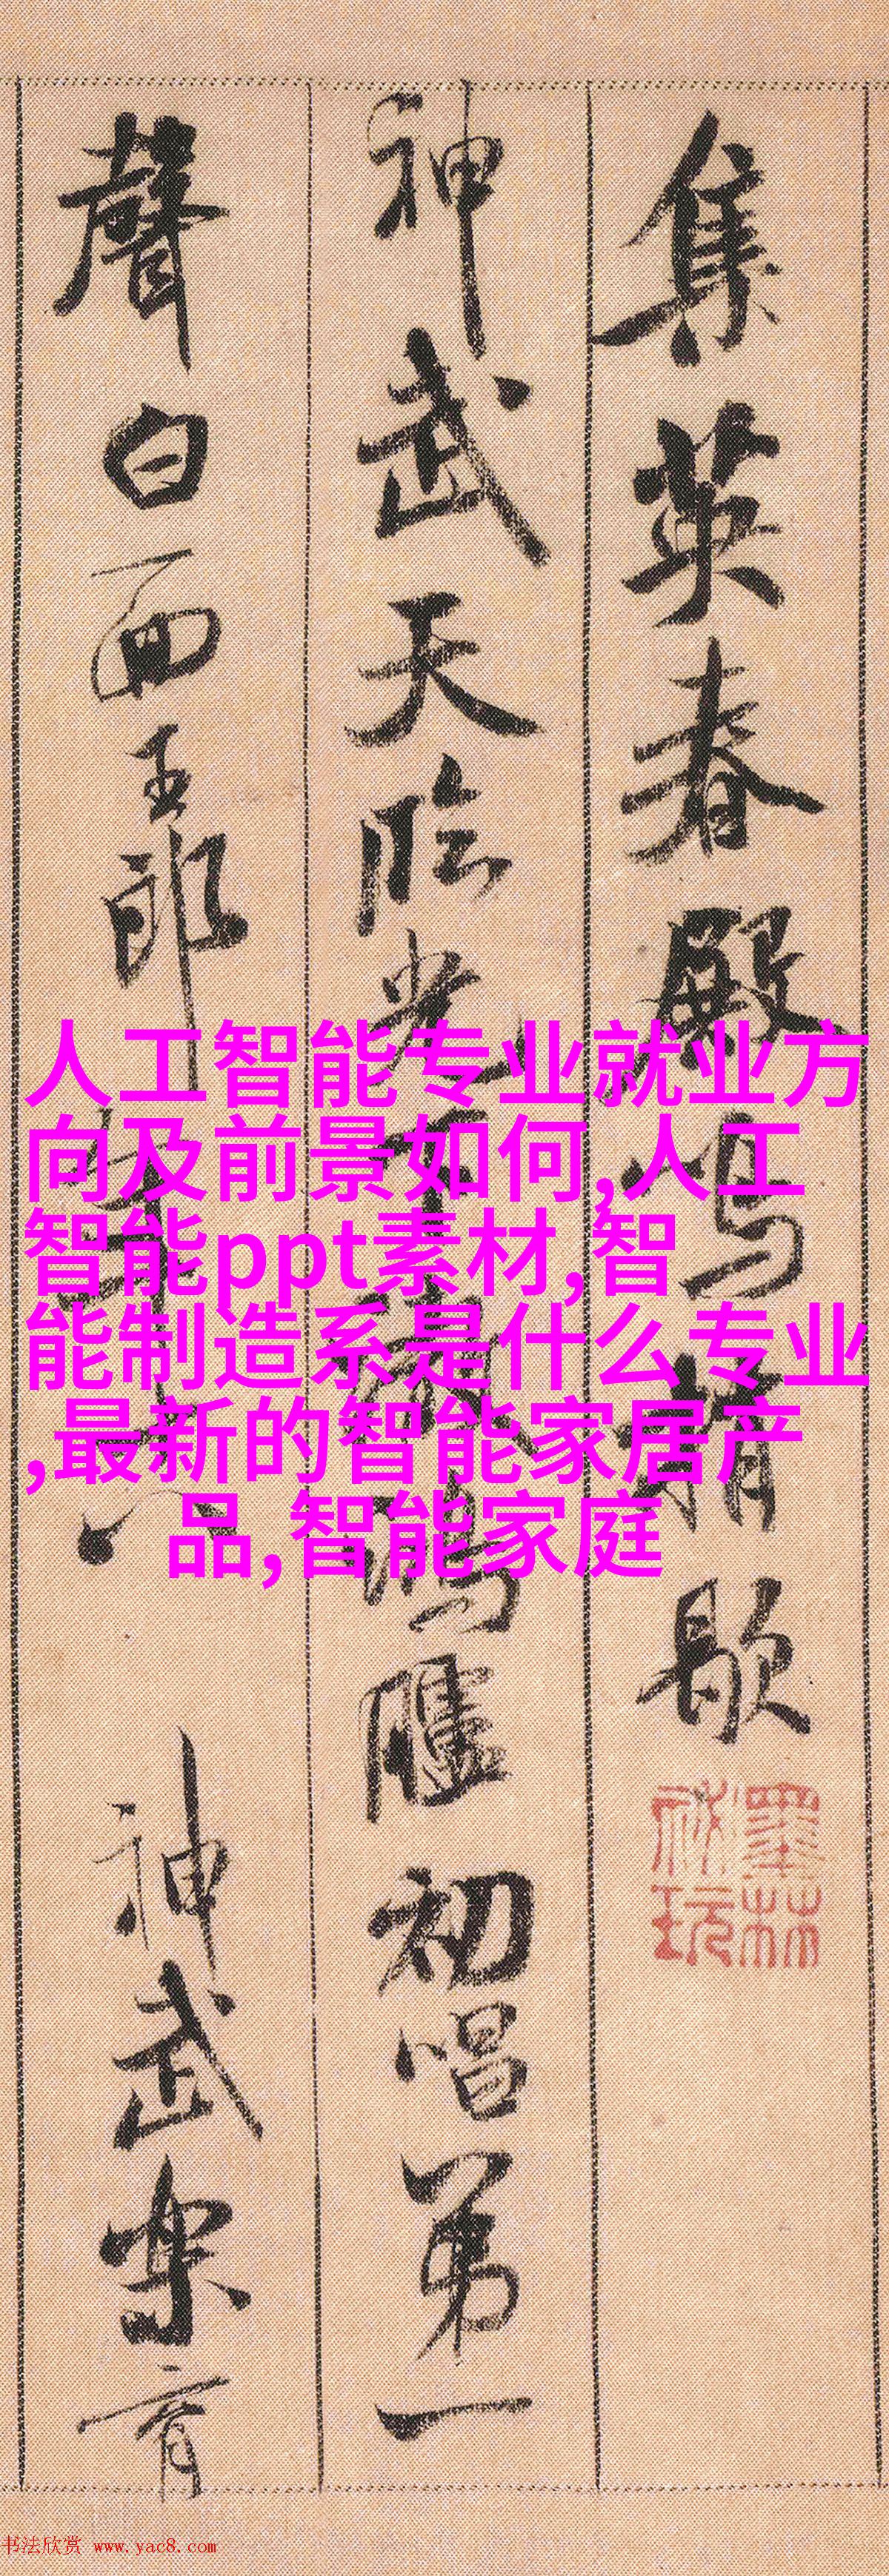 集英春殿鳴梢歇
神武天臨光下澈鴻臚初唱第一
聲白面王郎年十八 神武樂育
墨林祕玩
人工智能专业就业方
向及前景如何,人工
智能ppt素材,智
能制造系是什么专业
,最新的智能家居产
品,智能家庭
书法欣赏 www.yac8.com